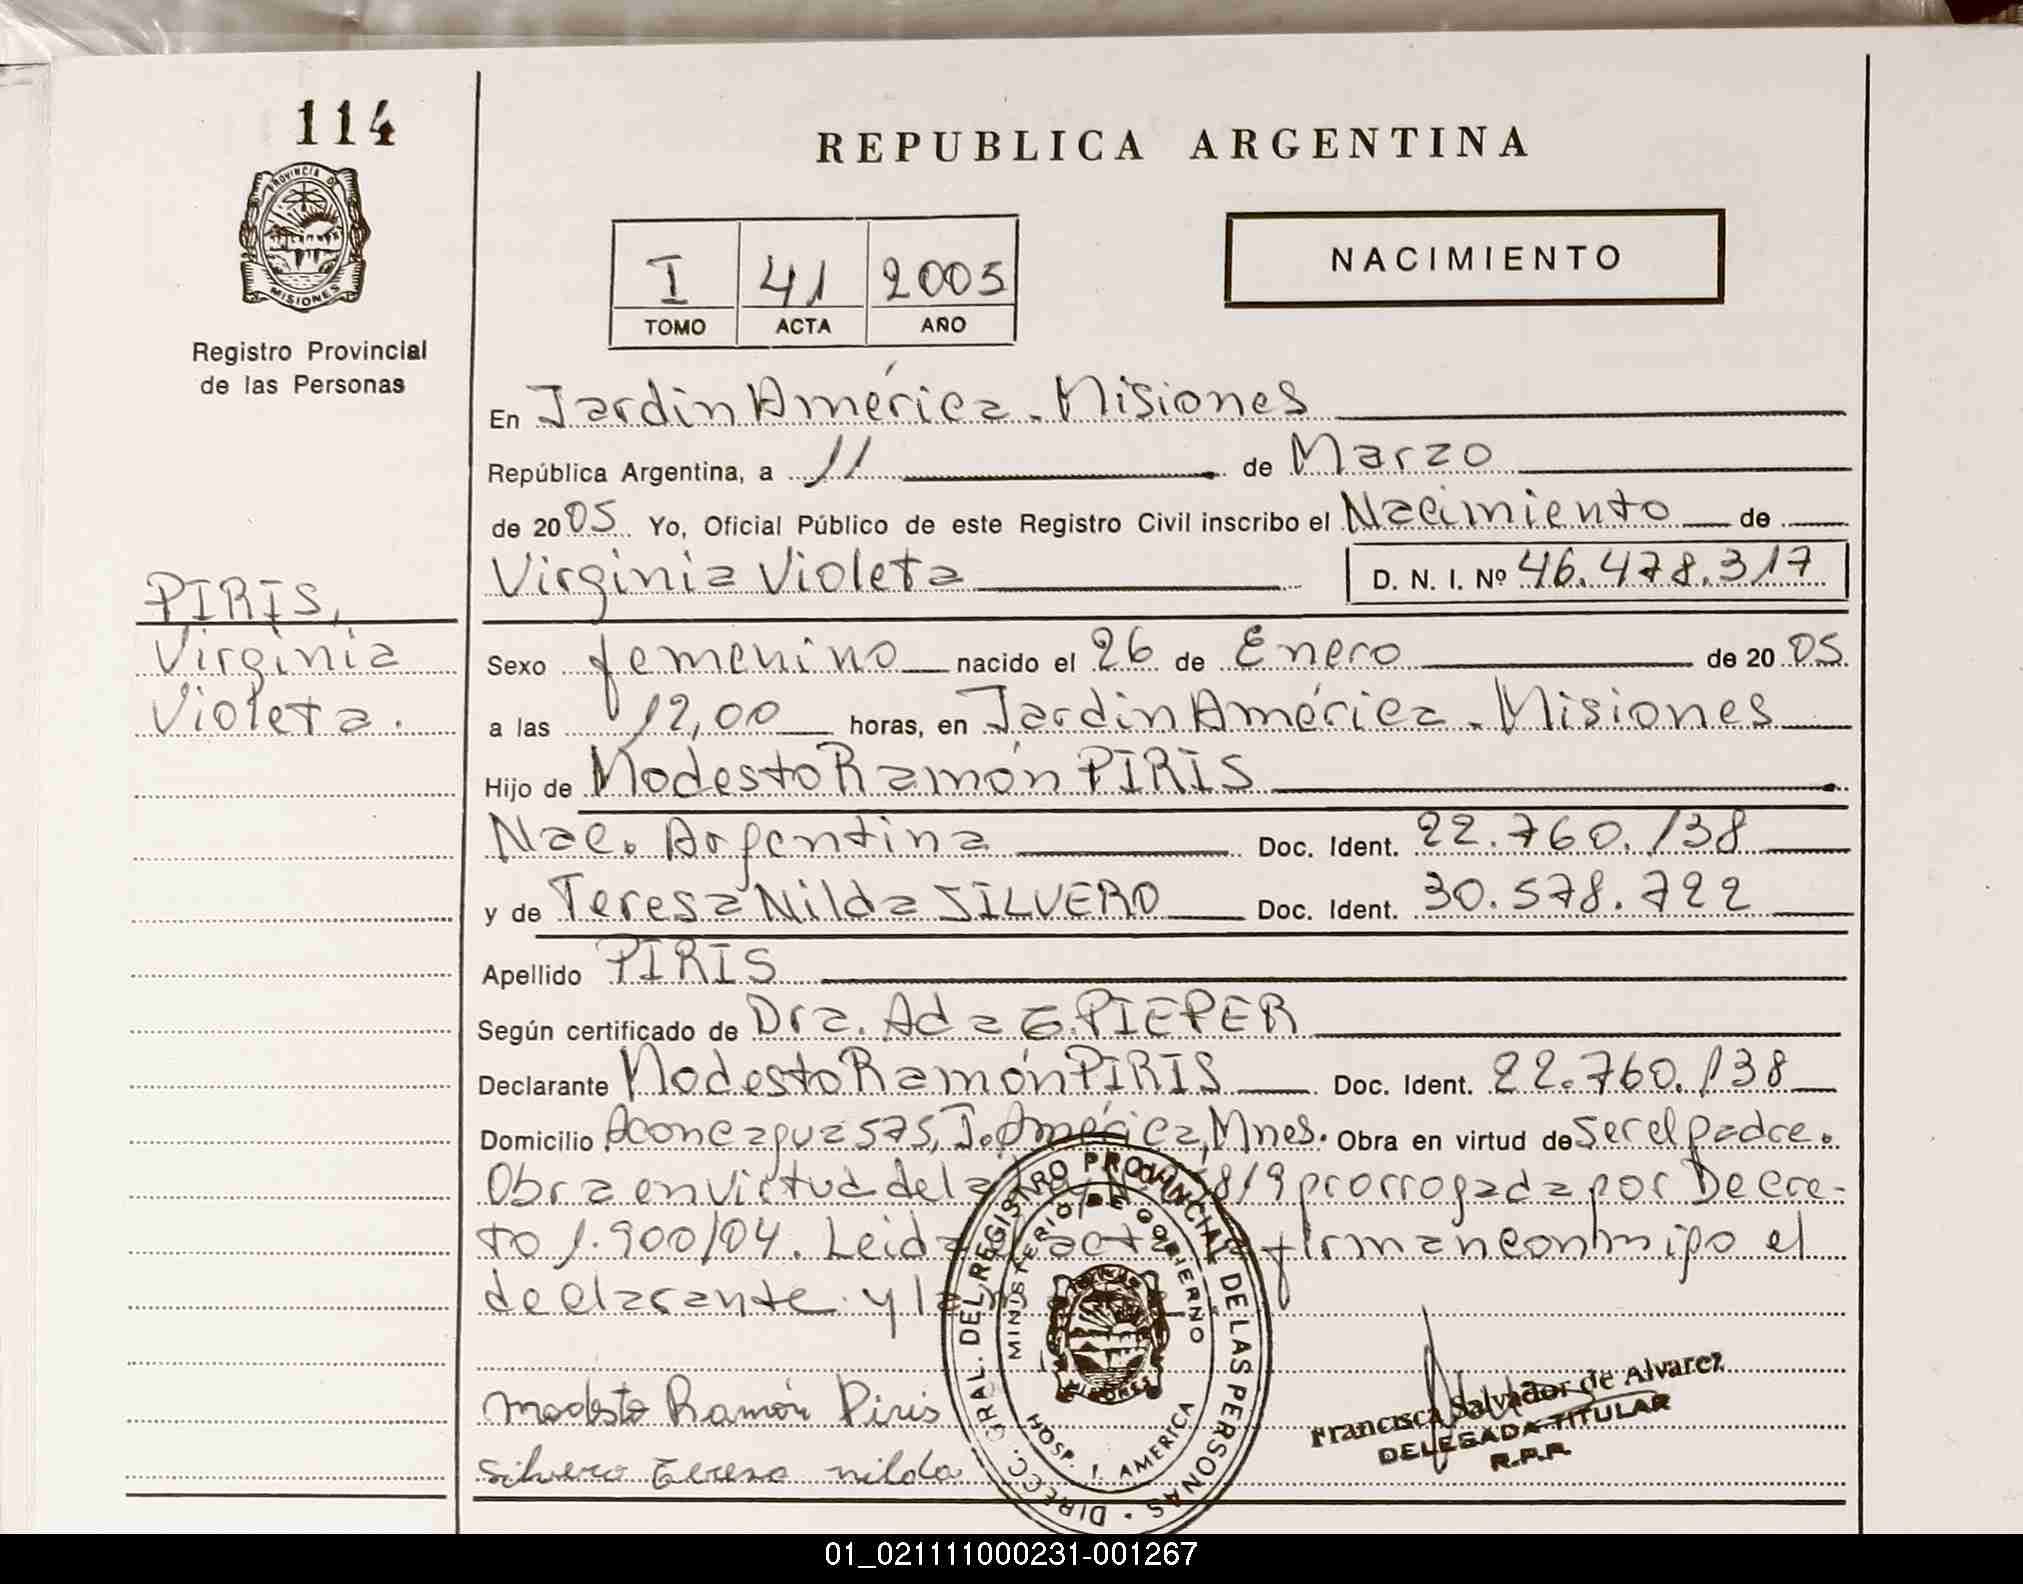 114
REPUBLICA ARGENTINA
PROVINCIA DE
MISIONES
NACIMIENTO
I 41 2005
TOMO ACTA AÑO
Registro Provincial
de las Personas
En Jardin América - Misiones
República Argentina, a 11 de Marzo
de 2005 Yo, Oficial Público de este Registro Civil inscribo el Nacimiento de
Virginia Violeta D. N. I. Nº 46.478.317
PIRIS,
Virginia
Violeta.
Sexo femenino nacido el 26 de Enero de 2005
a las 12,00 horas, en Jardin América - Misiones
Hijo de Modesto Ramón PIRIS
Nac. Argentina Doc. Ident. 22.760.138
y de Teresa Nilda SILVERO Doc. Ident. 30.578.722
Apellido PIRIS
Según certificado de Dra. Ada E. PIEPER
Declarante Modesto Ramón PIRIS Doc. Ident. 22.760.138
Domicilio Aconcagua 575, J. América, Mnes. Obra en virtud de ser el padre.
Obra en virtud de la 819 prorrogada por Decre-
to 1.900/04. Leida acta firman conmigo el
declarante y la
Modesto Ramón Piris
Silvero Teresa nilda
DIRECC. GRAL. DEL REGISTRO PROVINCIAL DE LAS PERSONAS
MINISTERIO DE GOBIERNO
HOSP. J. AMERICA
MISIONES
Francisca Salvador de Alvarez
DELEGADA TITULAR
R.P.P.
01_021111000231-001267